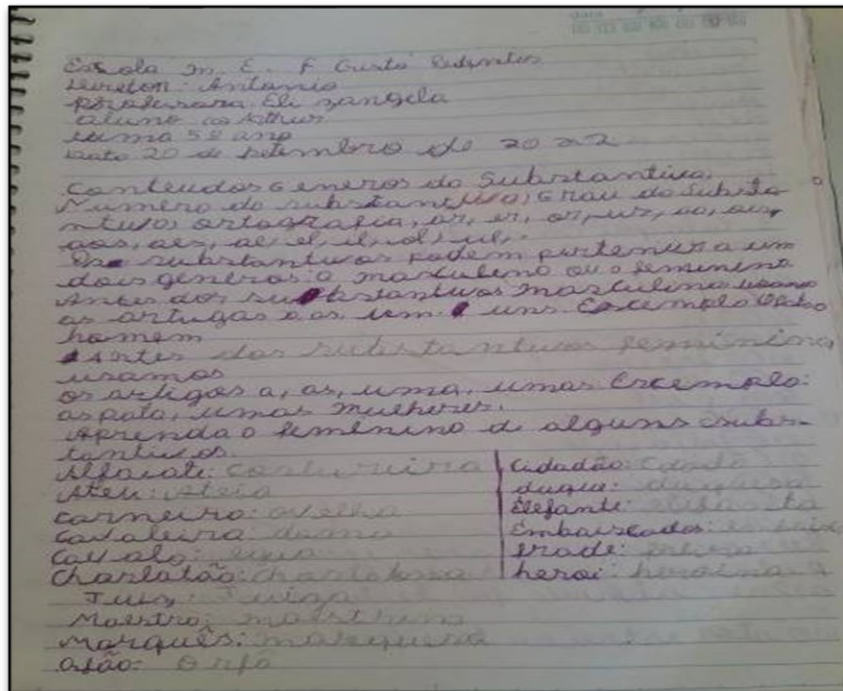 Escola M. E. F Custó
Antonio
professora Eli zangela
aluno Arthur
5º ano
Data 20 de setembro de 2022
Conteudos Generos do Substantivo,
Numero do substantivo, Grau do Substa
ntivo, ortografia, ar, er, or, ur, ao,
aos, aes, al, el, il, ol, ul,
Os substantivos podem pertencer a um
dois generos: o masculino ou o feminino
Antes dos substantivos masculino usamos
os artugos o os um uns Excemplo
homem
Antes dos substantivos feminino,
usamos
os artigos a, as, uma, umas Excemplo:
as pata, umas mulheres.
Aprenda o feminino d alguns csubs-
tantivos.
Alfaiate: Costureira
Ateu: Ateia
carneiro: ovelha
Cavaleiro: dama
Cavalo: egua
Charlatão:
Juiz: Juiza
Maestro:
Marquês:
Orfão: Orfã
Cidadão:
duque: duquesa
Elefante: elefanta
Embaixador:
frade:
heroi: heroina